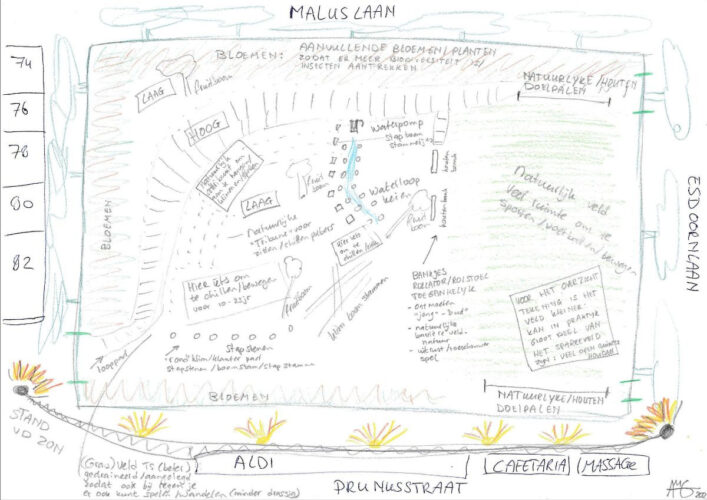 MALUSLAAN
BLOEMEN: AANVULLENDE BLOEMEN/PLANTEN
ZODAT ER MEER BIODIVERSITEIT
INSECTEN AANTREKKEN
NATUURLYKE/HOUTEN
DOELPALEN
74
76
78
80
82
LAAG
fruitboom
HOOG
Waterpomp
stapboom
stammetjes
houten bank
houten bank
LAAG
Fruit
boom
Waterloop
keien
Fruit
boom
BLOEMEN
Natuurlijke
"Tribune" voor
zitten/chillen pubers
Hier iets om
te chillen
Natuurlijk veld
veel ruimte om te
sporten/voetballen/bewegen
ESDOORNLAAN
Hier iets om
te chillen/bewegen
voor 10-25jr
fruitboom
klim boom stammen
BANKJES
ROLLATOR/ROLSTOEL
TOEGANKELYK
- ontmoeten
"jong" - "oud"
- natuurlijke
barrière veld
natuur
- uitrust/toeschouwer
spel
VOOR HET OVERZICHT
TEKENING IS HET
VELD KLEINER
KAN IN PRAKTYK
GROOT DEEL VAN
HET SPAREVELD
ZYN: VEEL OPEN RUIMTE
HOUDEN
looppad
Stapstenen
rond klim/klauter pad
stapstenen/boomstam/stap stammen
BLOEMEN
NATUURLYKE/HOUTEN
DOELPALEN
STAND
VD ZON
(Gras) veld IS (beter)
gedraineerd/aangelegd
zodat ook bij regen je
er ook kunt spelen/wandelen (minder drassig)
ALDI
CAFETARIA
MASSAGE
PRUNUSSTRAAT